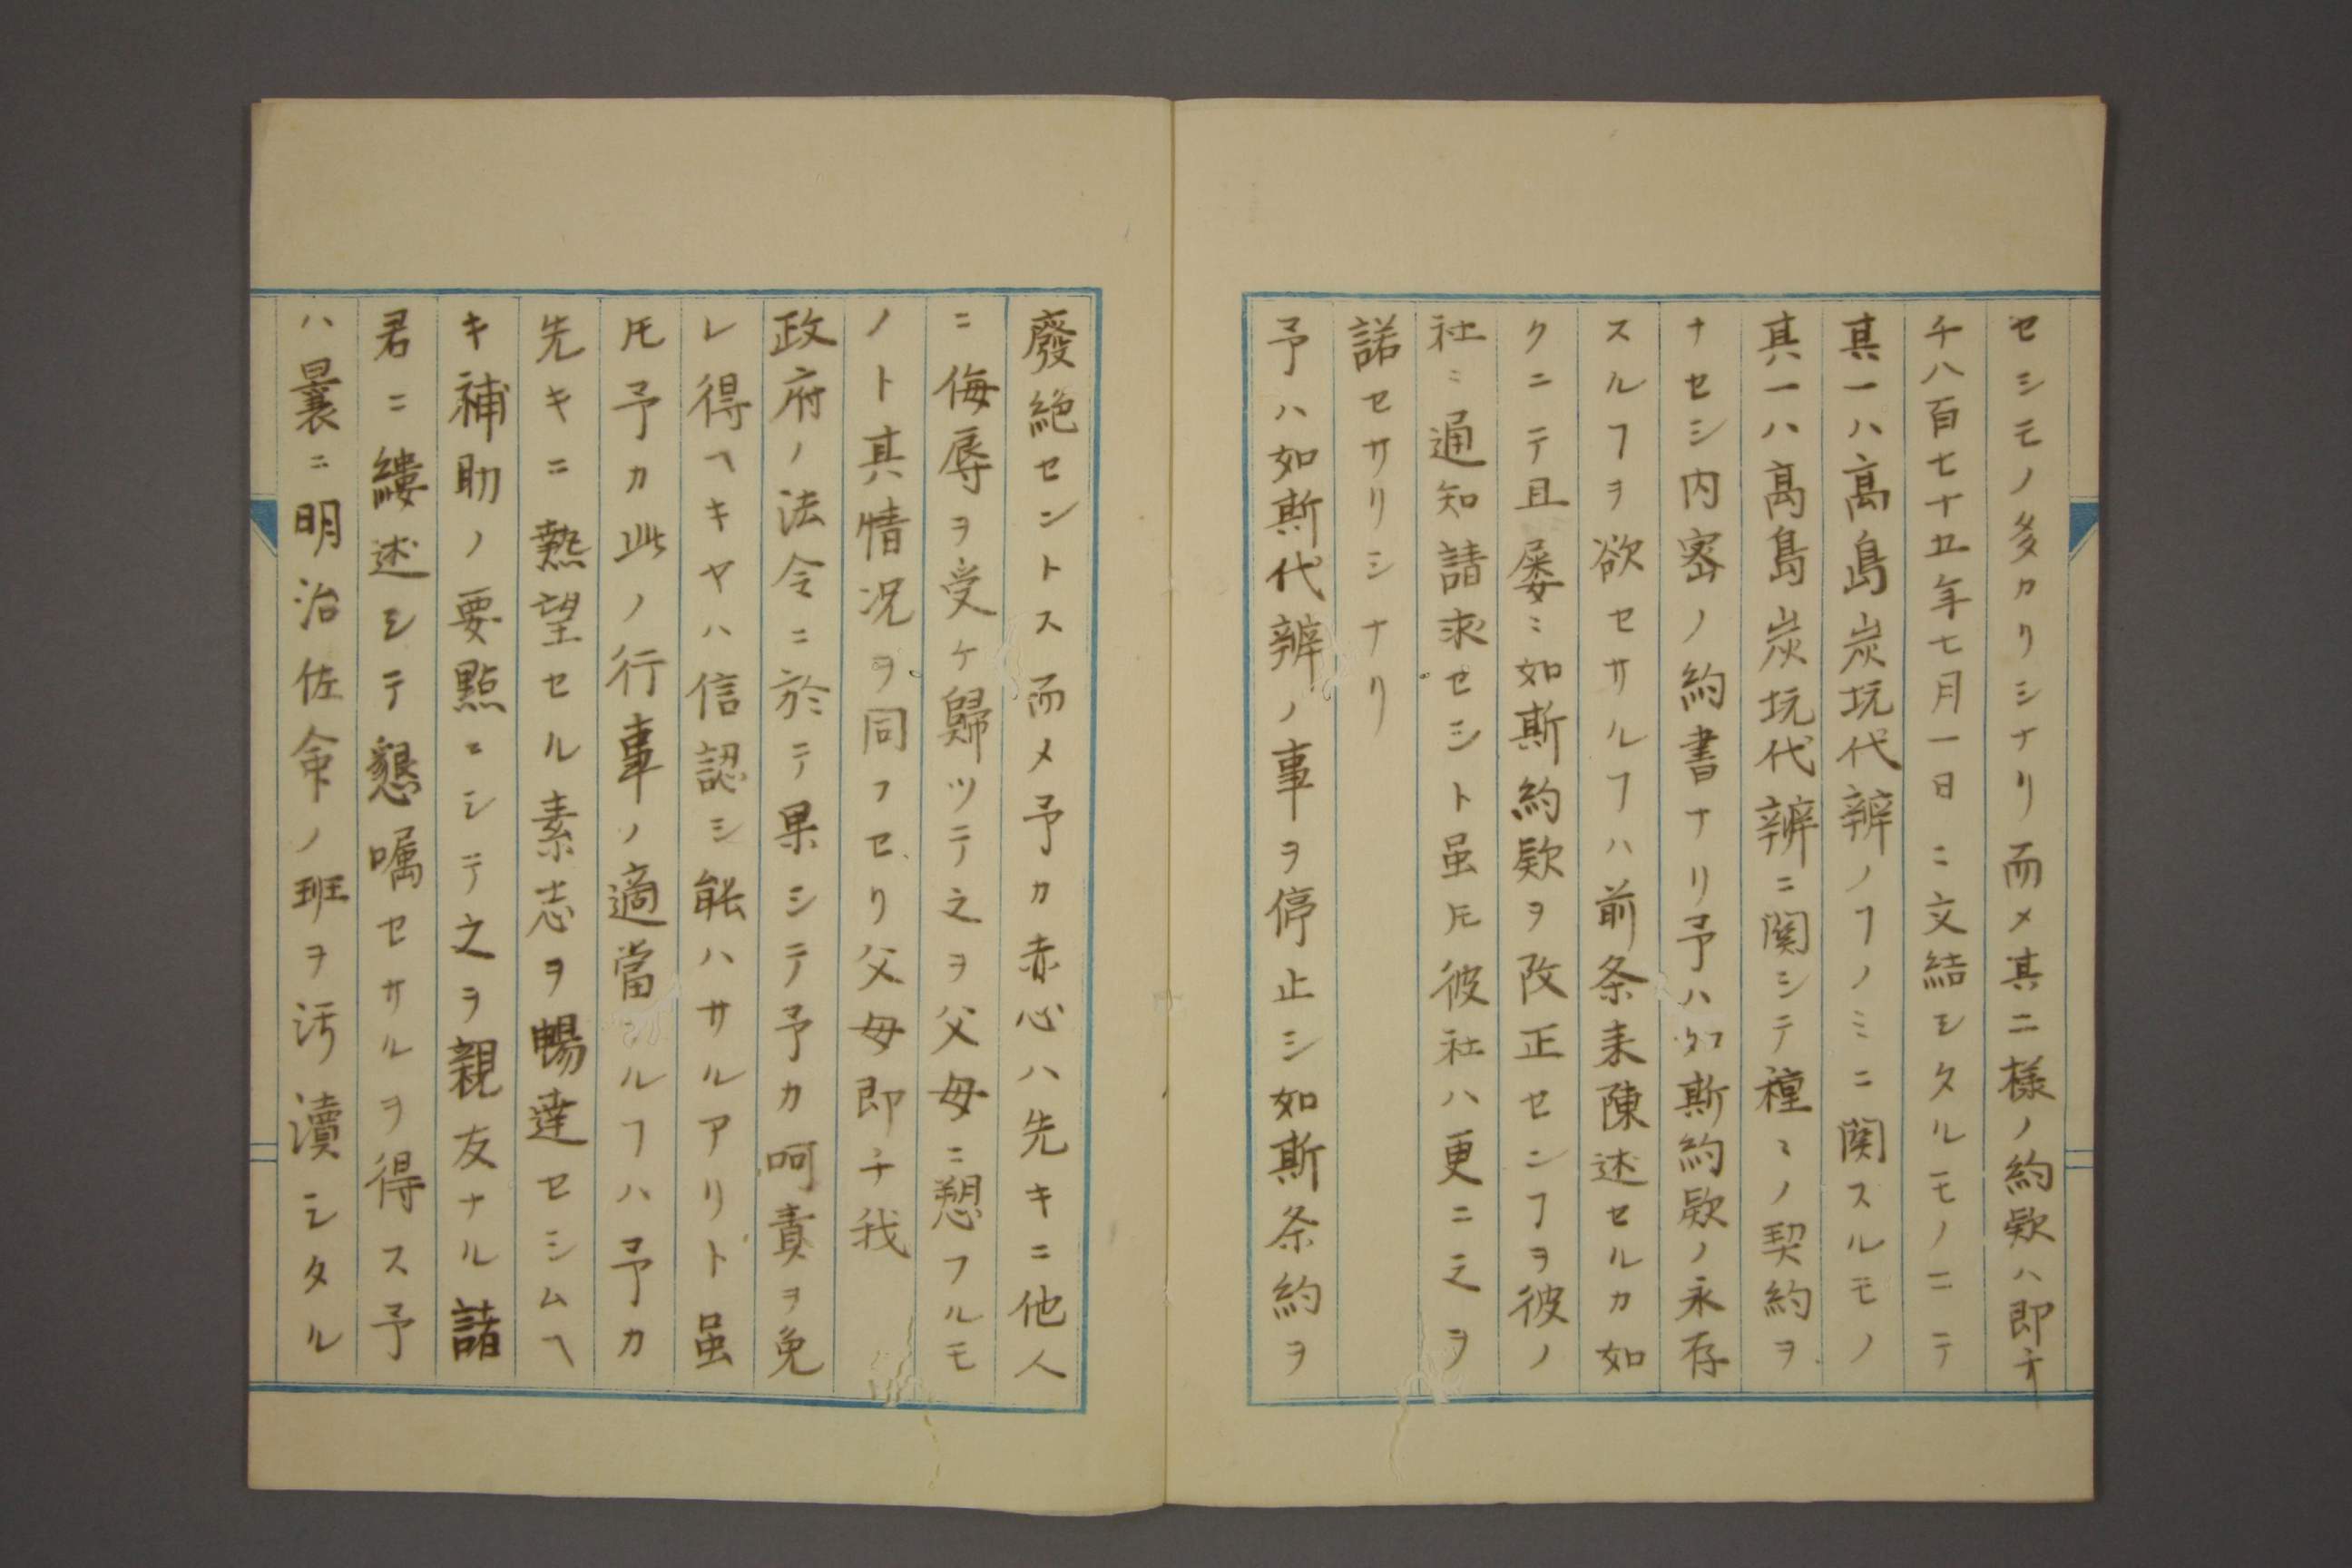 セシモノ多カリシナリ而メ其二様ノ約欵ハ即チ
千八百七十五年七月一日ニ文結シタルモノニテ
其一ハ高島炭坑代辨ノヿノミニ関スルモノ
其一ハ高島炭坑代辨ニ関シテ種々ノ契約ヲ
ナセシ内密ノ約書ナリ予ハ如斯約欵ノ永存
スルヿヲ欲セサルヿハ前条来陳述セルカ如
クニテ且屡々如斯約欵ヲ改正センヿヲ彼ノ
社ニ通知請求セシト虽𪜈彼社ハ更ニ之ヲ
諾セサリシナリ
予ハ如斯代辨ノ事ヲ停止シ如斯条約ヲ
廢絶セントス而メ予カ赤心ハ先キニ他人
ニ侮辱ヲ受ケ歸ツテ之ヲ父母ニ愬フルモ
ノト其情況ヲ同フセリ父母即チ我
政府ノ法令ニ於テ果シテ予カ呵責ヲ免
レ得ヘキヤハ信認シ能ハサルアリト虽
𪜈予カ此ノ行事ノ適當ナルヿハ予カ
先キニ熱望セル素志ヲ暢達セシムヘ
キ補助ノ要點ニシテ之ヲ親友ナル諸
君ニ縷述シテ懇嘱セサルヲ得ス予
ハ曩ニ明治佐命ノ班ヲ汚瀆シタル